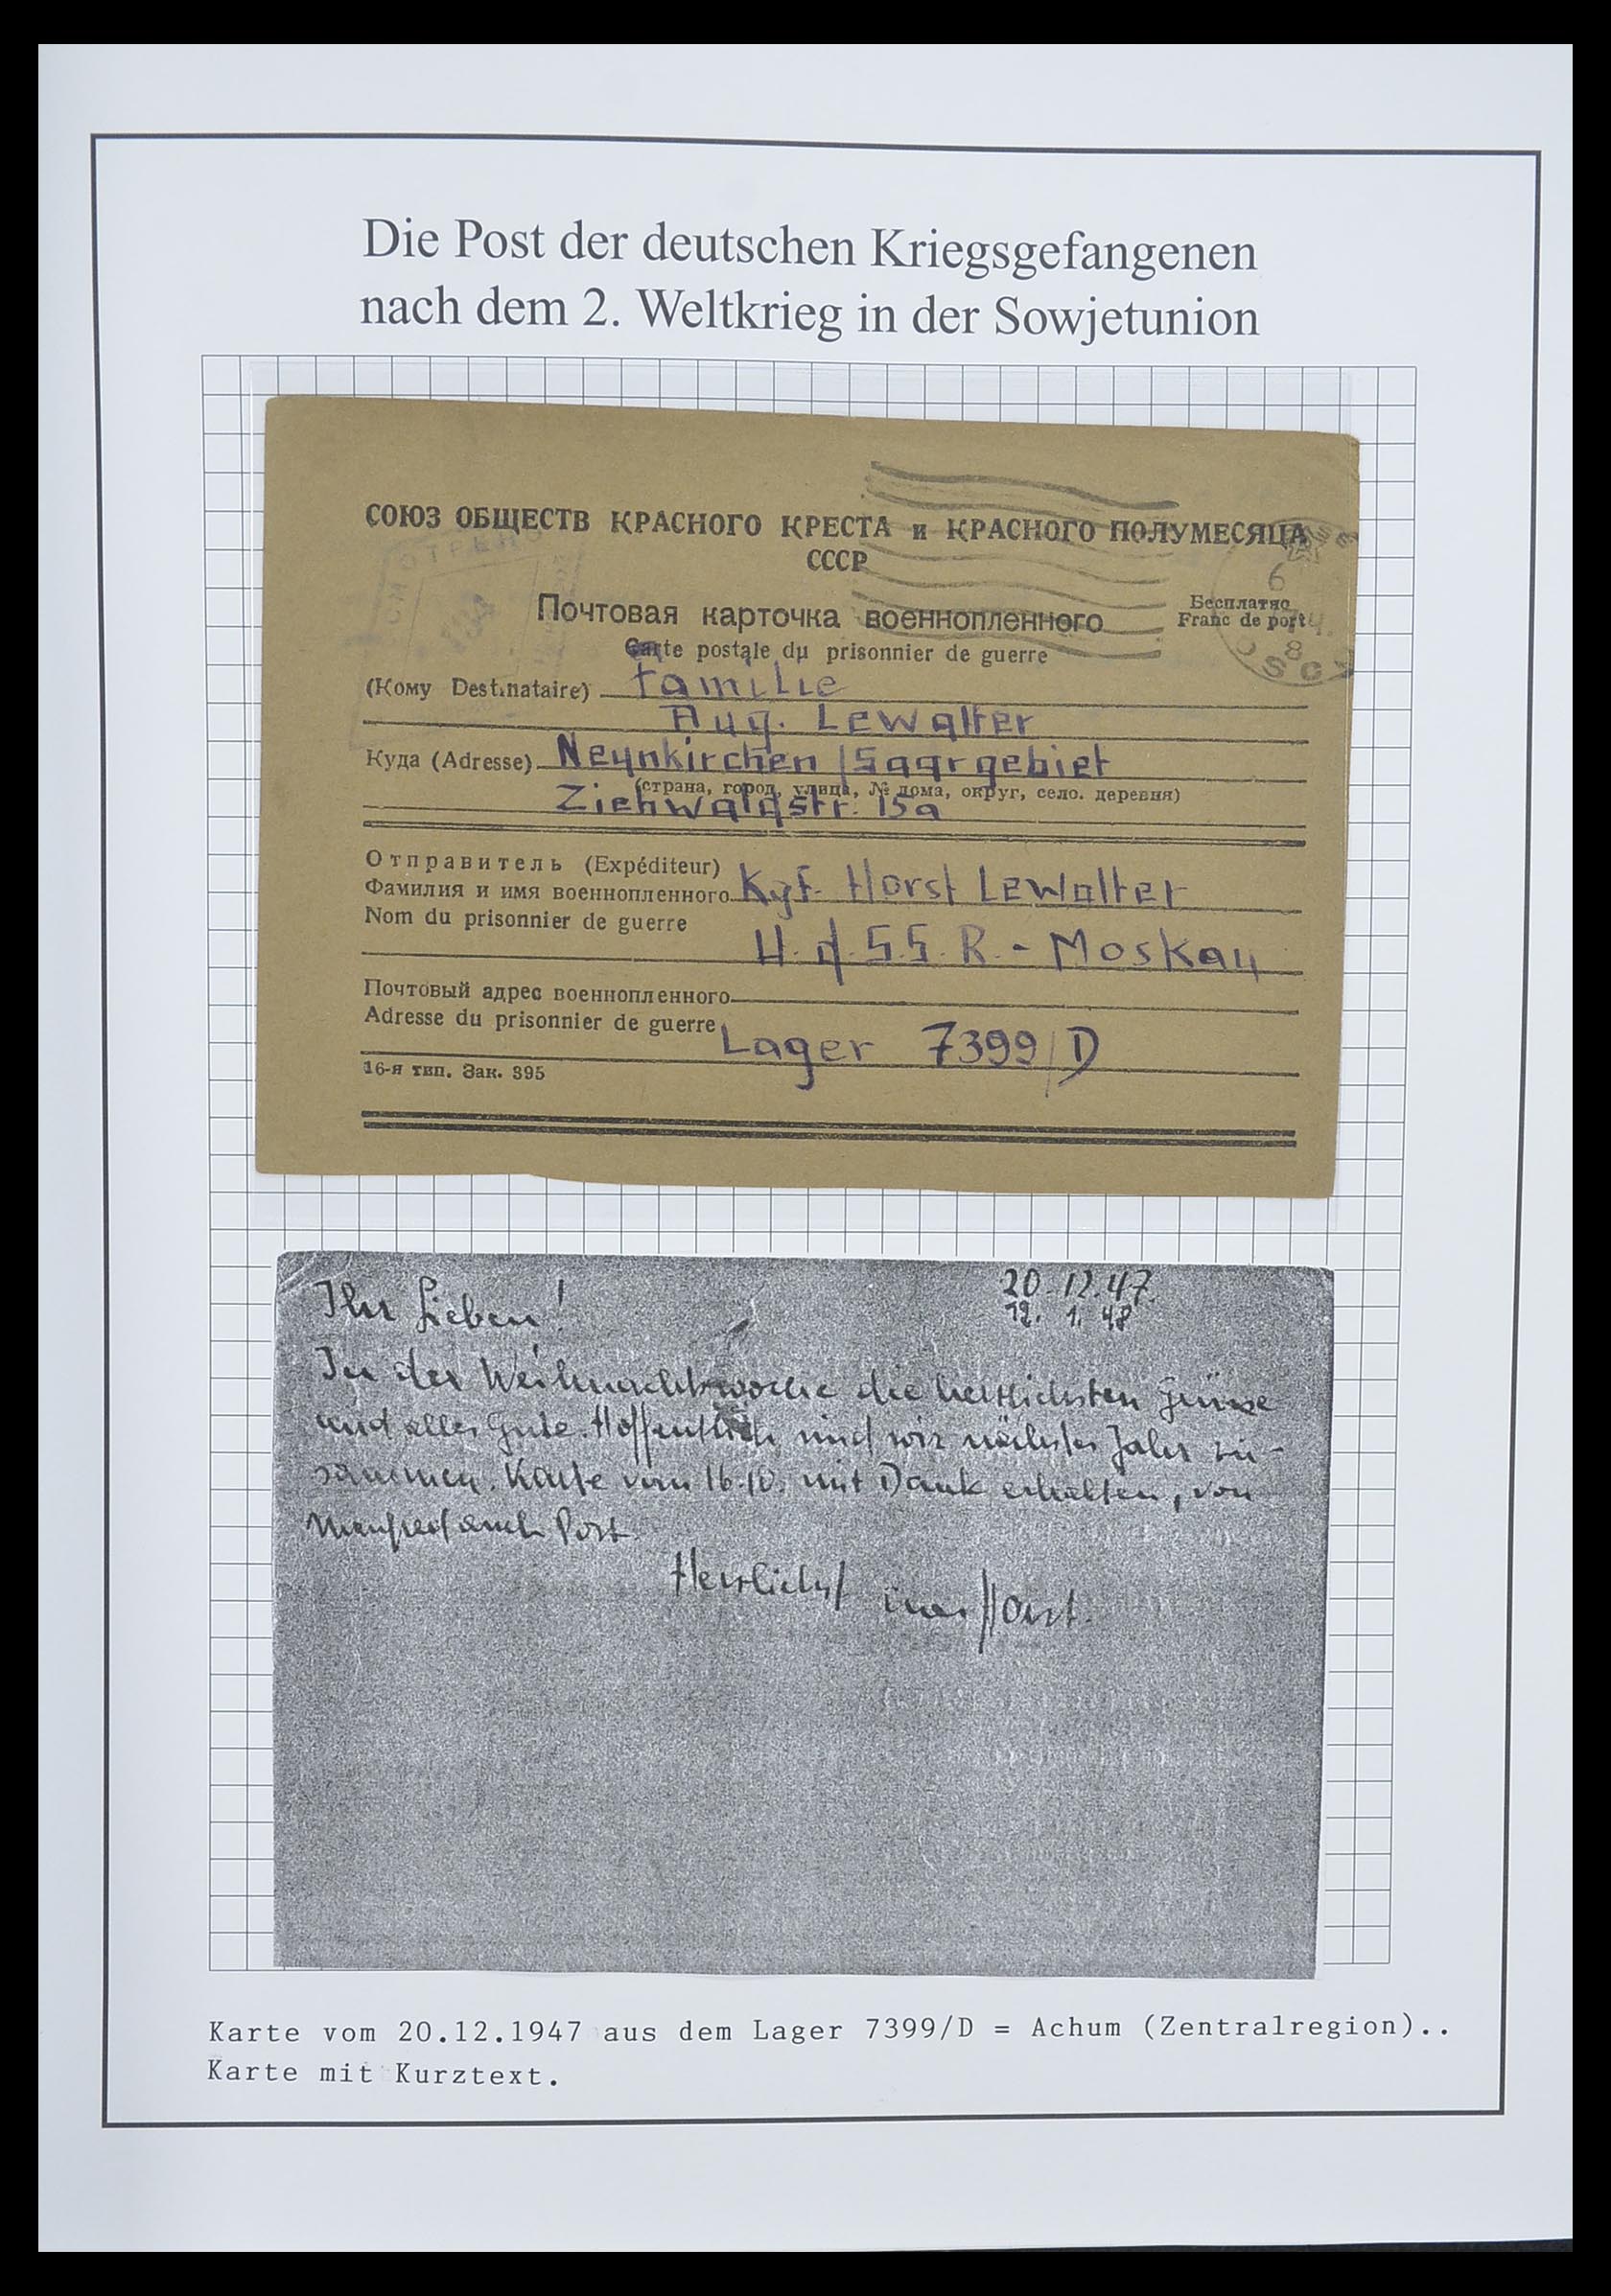 Die Post der deutschen Kriegsgefangenen
nach dem 2. Weltkrieg in der Sowjetunion
СОЮЗ ОБЩЕСТВ КРАСНОГО КРЕСТА и КРАСНОГО ПОЛУМЕСЯЦА
СССР
Почтовая карточка военнопленного
Бесплатно
Franc de port
Carte postale du prisonnier de guerre
(Кому Destinataire) Familie
Aug. Lewalter
Куда (Adresse) Neunkirchen/Saargebiet
(страна, город, улица, № дома, округ, село, деревня)
Ziehwaldstr. 15a
Отправитель (Expéditeur)
Фамилия и имя военнопленного Kgf. Horst Lewalter
Nom du prisonnier de guerre
U.d.S.S.R. - Moskau
Почтовый адрес военнопленного
Adresse du prisonnier de guerre Lager 7399/D
16-я тип. Зак. 395
20.12.47.
12. 1. 48
Ihr Lieben!
In der Weihnachtswoche die herzlichsten Grüsse
und alles Gute. Hoffentlich sind wir nächstes Jahr zu-
sammen. Karte vom 16.10. mit Dank erhalten, von
Manfred auch Post.
Herzlichst Horst.
Karte vom 20.12.1947 aus dem Lager 7399/D = Achum (Zentralregion)..
Karte mit Kurztext.